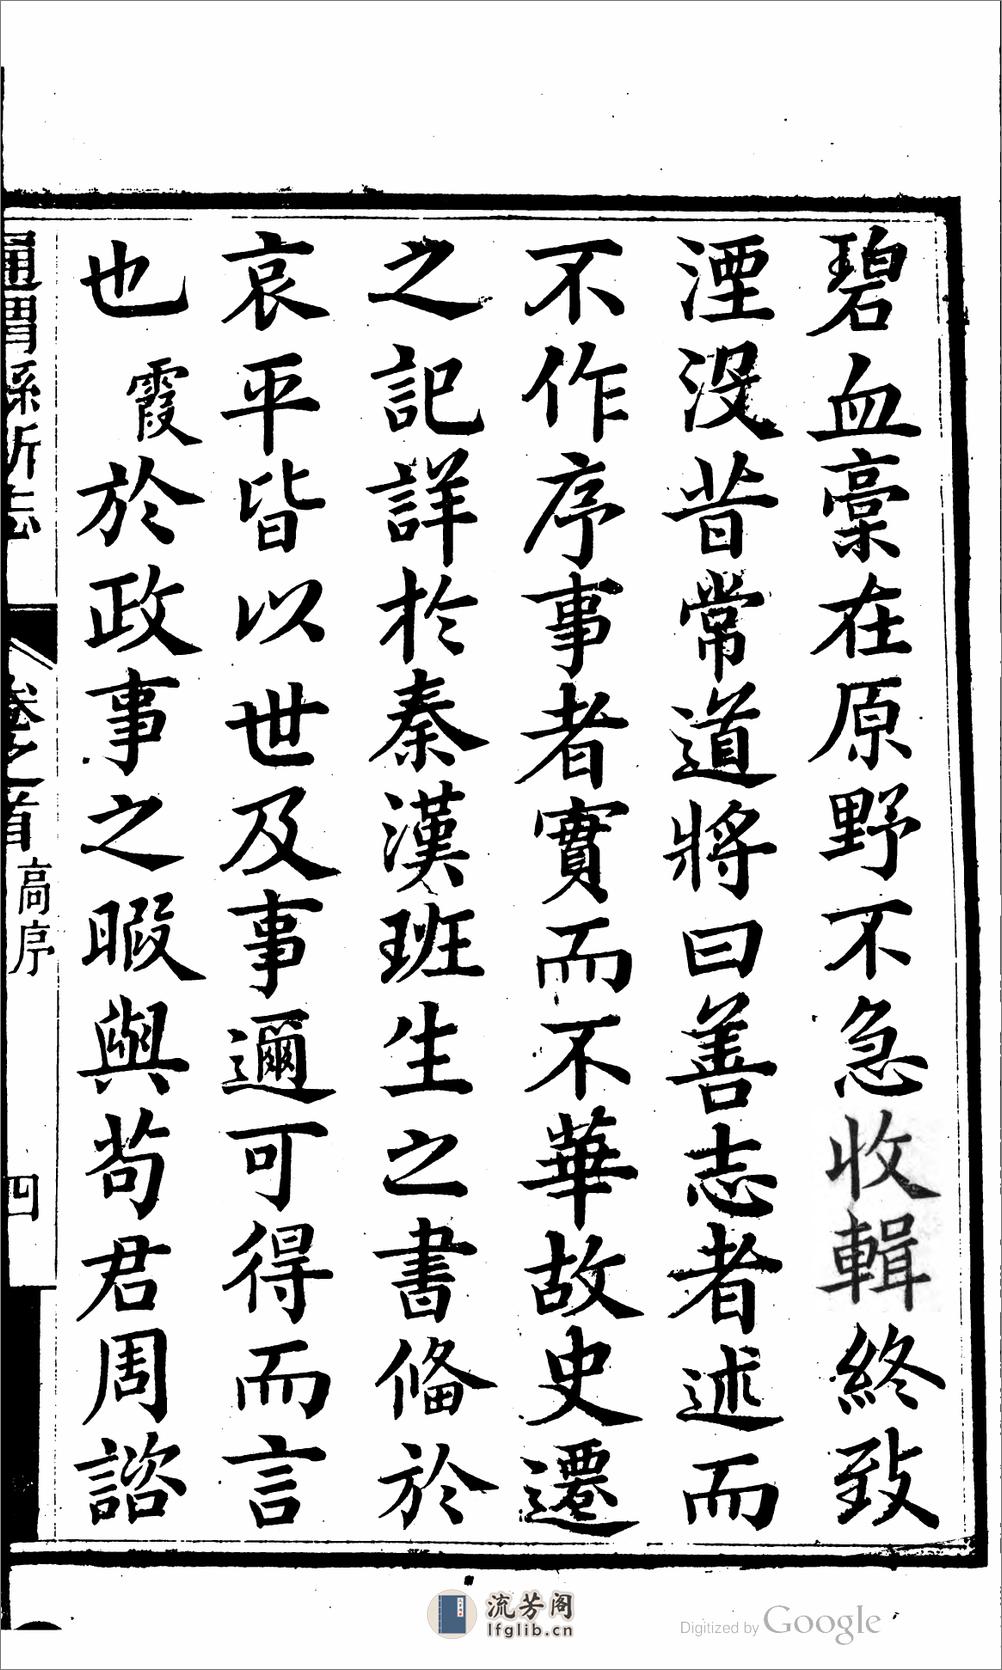 碧血藁在原野不急收輯終致
湮没昔常道將曰善志者述而
不作序事者實而不華故史遷
之記詳於秦漢班生之書俻於
哀平皆以世及事邇可得而言
也霞於政事之暇與苟君周諮
通渭縣新志 卷之首 高序 四
流芳阁
lfglib.cn
Digitized by Google